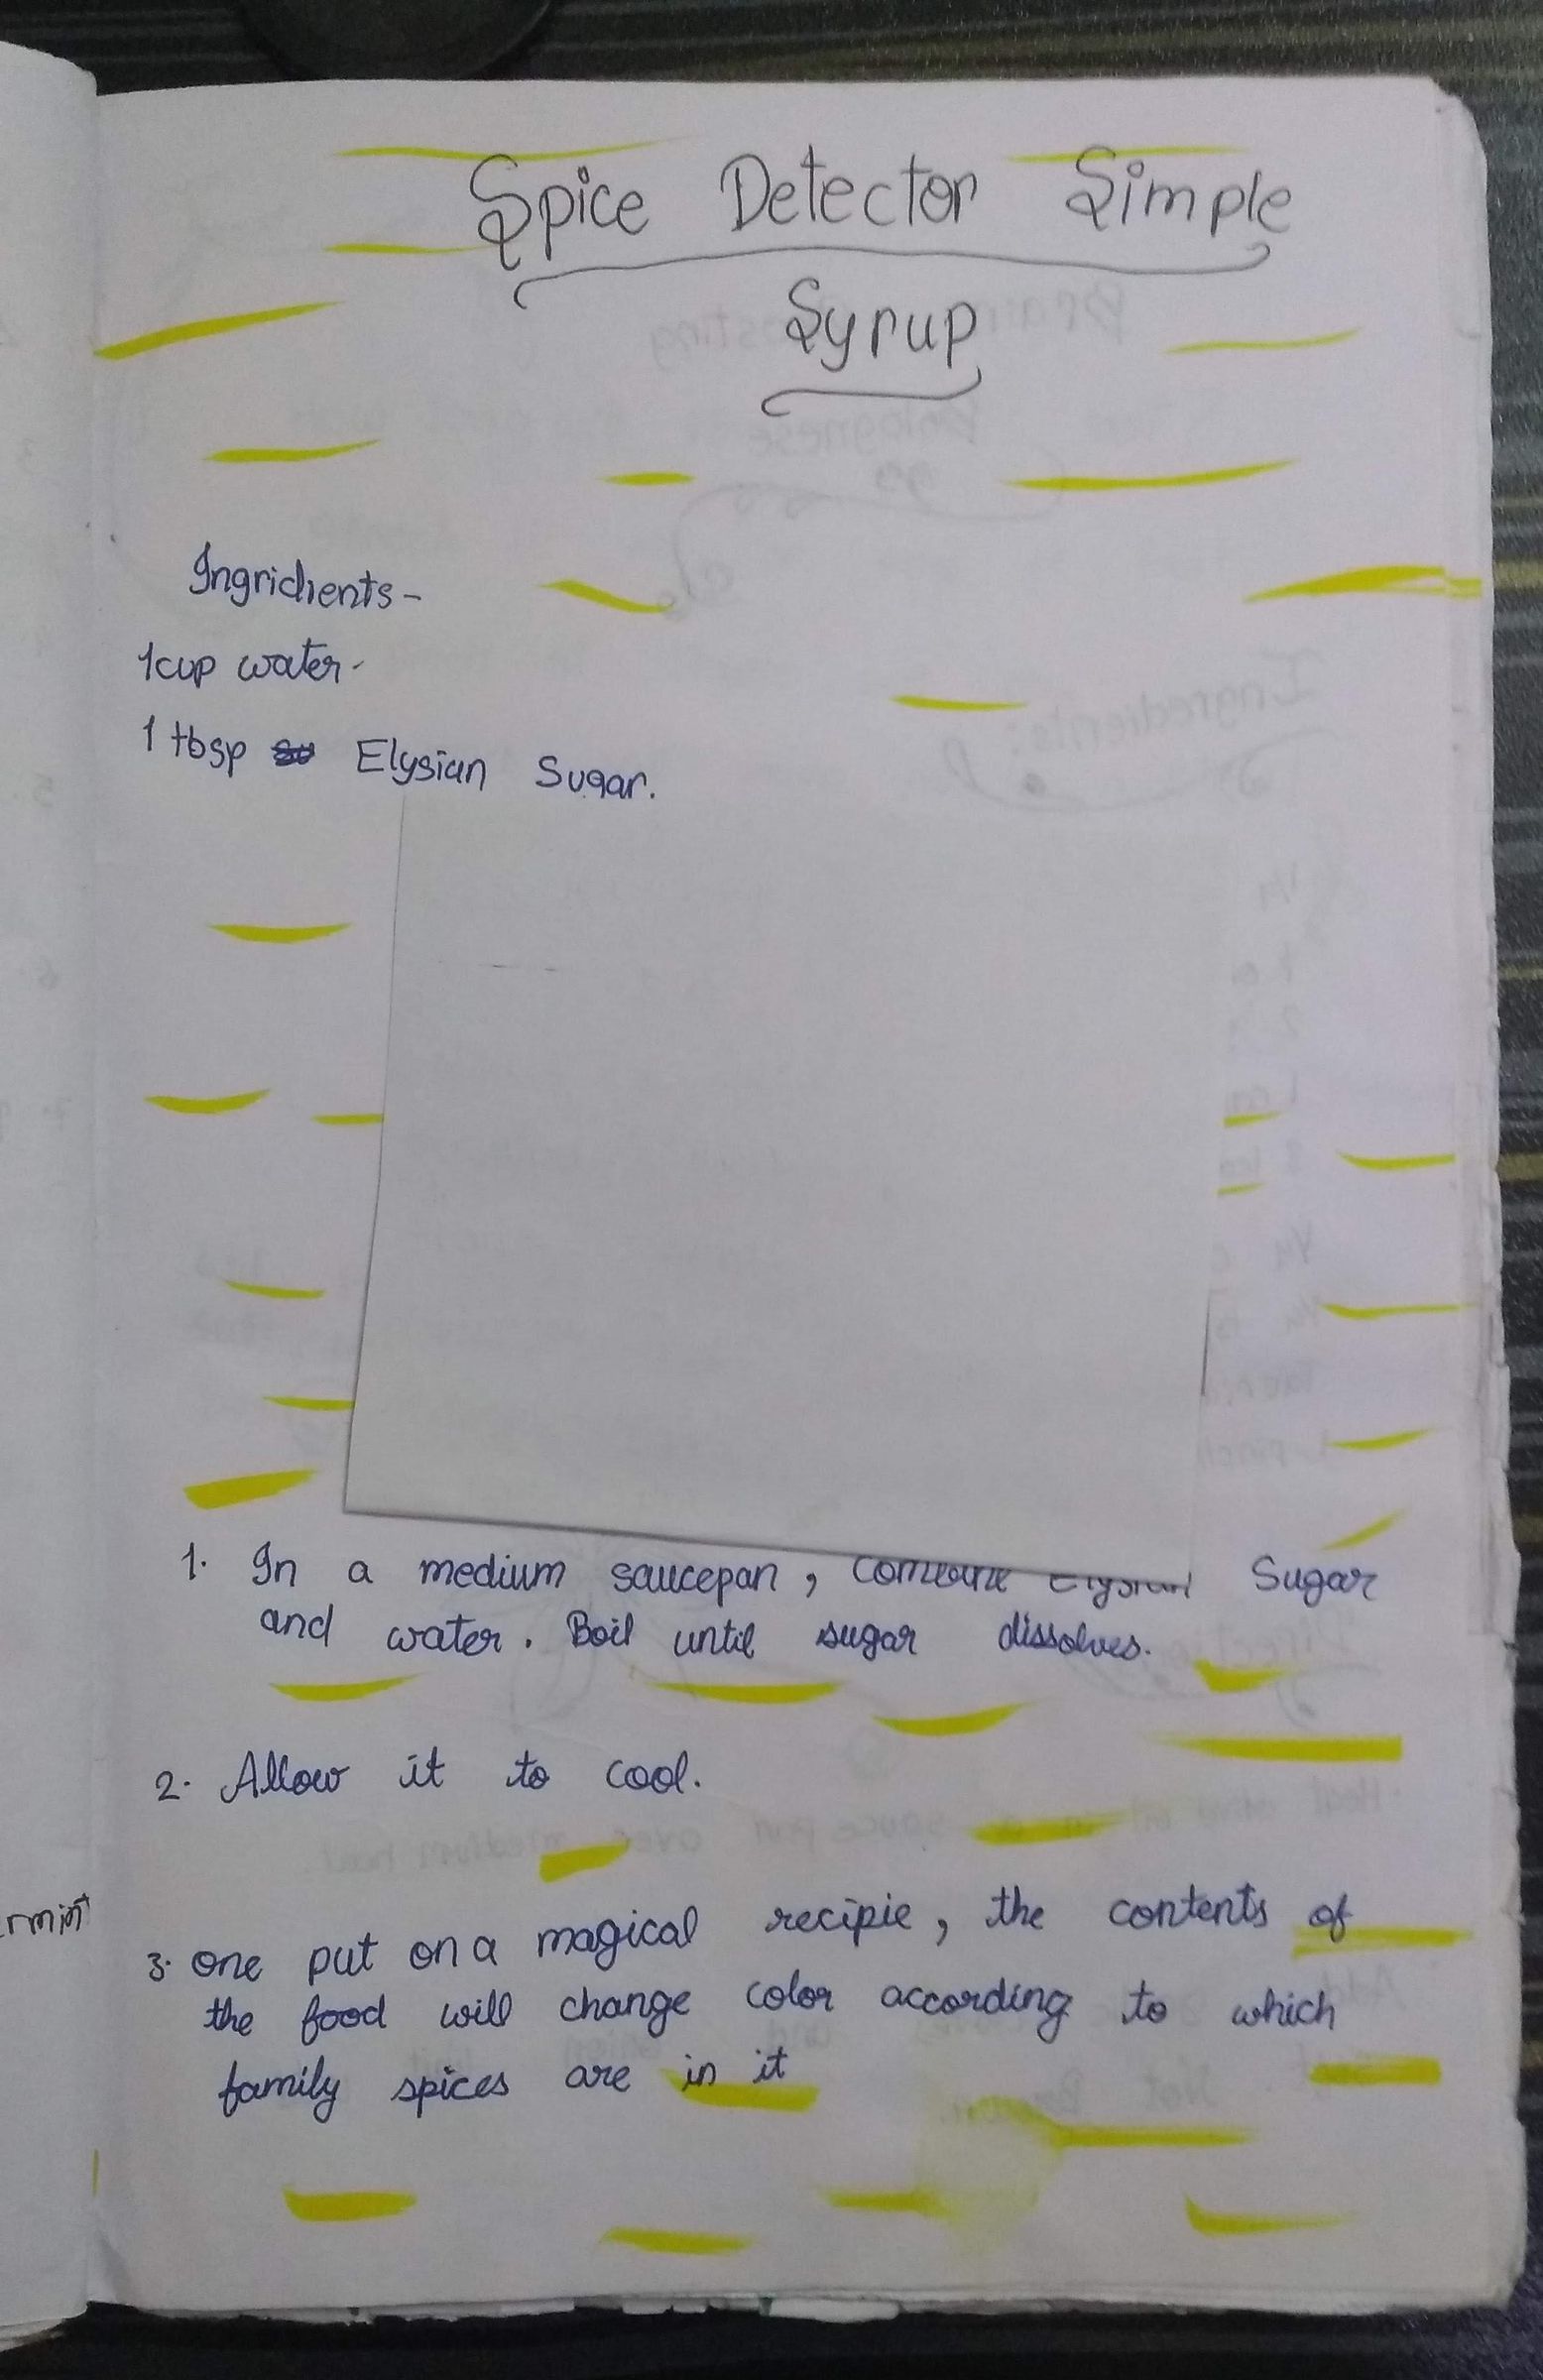 Spice Detector Simple
Syrup
Ingridients-
1cup water-
1 tbsp Elysian Sugar.
1. In a medium saucepan, combine Elysian Sugar
and water. Boil until sugar dissolves.
2. Allow it to cool.
3. one put on a magical recipie, the contents of
the food will change color according to which
family spices are in it